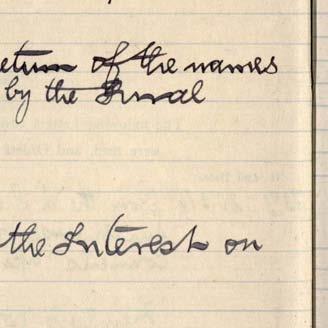 eturn of the names
by the Rural
the Interest on